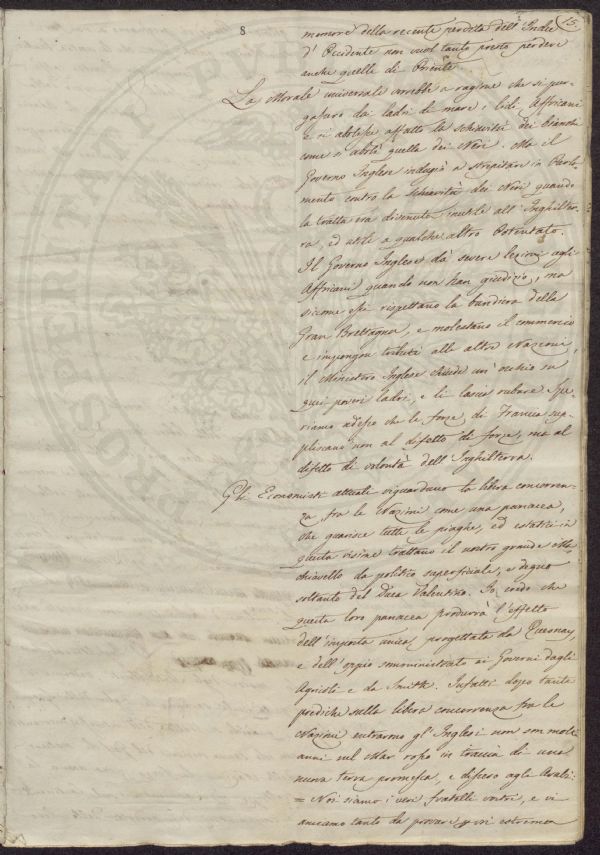 8
15.
memore della recente perdita dell'Indie
d'Occidente non vuol tanto presto perdere
anche quelle di Oriente
La Morale universale vorrebbe a ragione che si pur-
gassero da ladri di mare i lidi Affricani
e si abolisse affatto la schiavitù dei bianchi
come si abolì quella dei Neri. Ma il
Governo Inglese indugiò a strepitare in Parla-
mento contro la schiavitù dei Neri quando
la tratta era divenuta inutile all'Inghilter-
ra, ed utile a qualche altro Potentato.
Il Governo Inglese dà severe lezioni agli
Affricani quando non han giudizio, ma
siccome essi rispettano la bandiera della
Gran Brettagna, e molestano il commercio
e impongon tributi alle altre Nazioni,
il Ministero Inglese chiude un'occhio su
quei poveri ladri, e li lascia rubare. Spe-
riamo adesso che le forze di Francia sup-
pliscano non al difetto di forze, ma al
difetto di volontà dell'Inghilterra.
Gli Economisti attuali riguardano la libera concorren-
za fra le Nazioni come una panacea,
che guarisce tutte le piaghe, ed estatici in
questa visione trattano il nostro grande
chiavello da politico superficiale, e degno
soltanto del Duca Valentino. Io credo che
questa loro panacea produrrà l'effetto
dell'imposta unica progettata da Quesnay,
e dell'oppio somministrato ai Governi dagli
Agricoli e da Smith. Infatti dopo tante
prediche sulla libera concorrenza fra le
Nazioni entrarono gl'Inglesi non son molti
anni sul Mar rosso in traccia di una
nuova terra promessa, e dissero agli Arabi:
= Noi siamo i veri fratelli vostri, e vi
amiamo tanto da provare per voi estrema